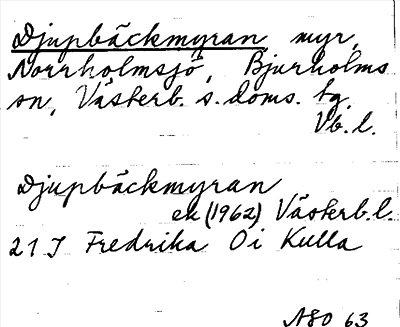 Djupbäckmyran, myr,
Norrholmsjö, Bjurholms
sn, Västerb. s. doms. tg.
Vb. l.
Djupbäckmyran
ek (1962) Västerb. l.
21 J Fredrika Oi Kulla
ASO 63